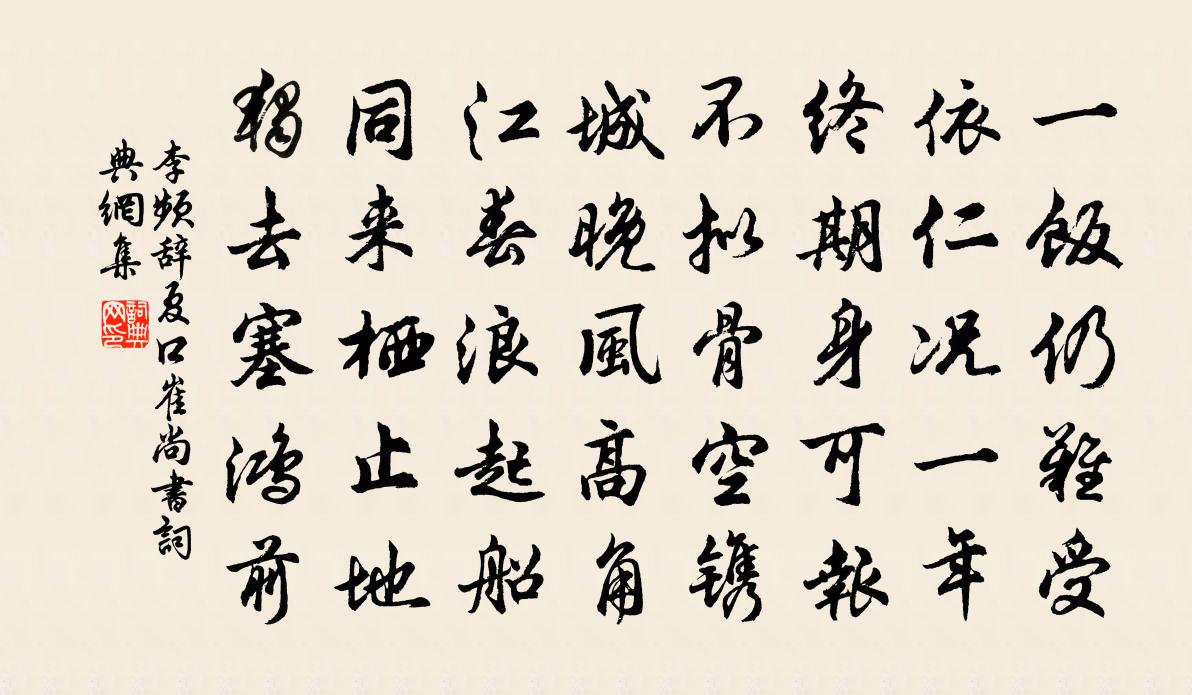 一飯仍難受
依仁况一年
终期身可報
不拟骨空镌
城晚風高角
江春浪起船
同来栖止地
独去塞鸿前
李频辞夏口崔尚書詞
典網集
詞典网印